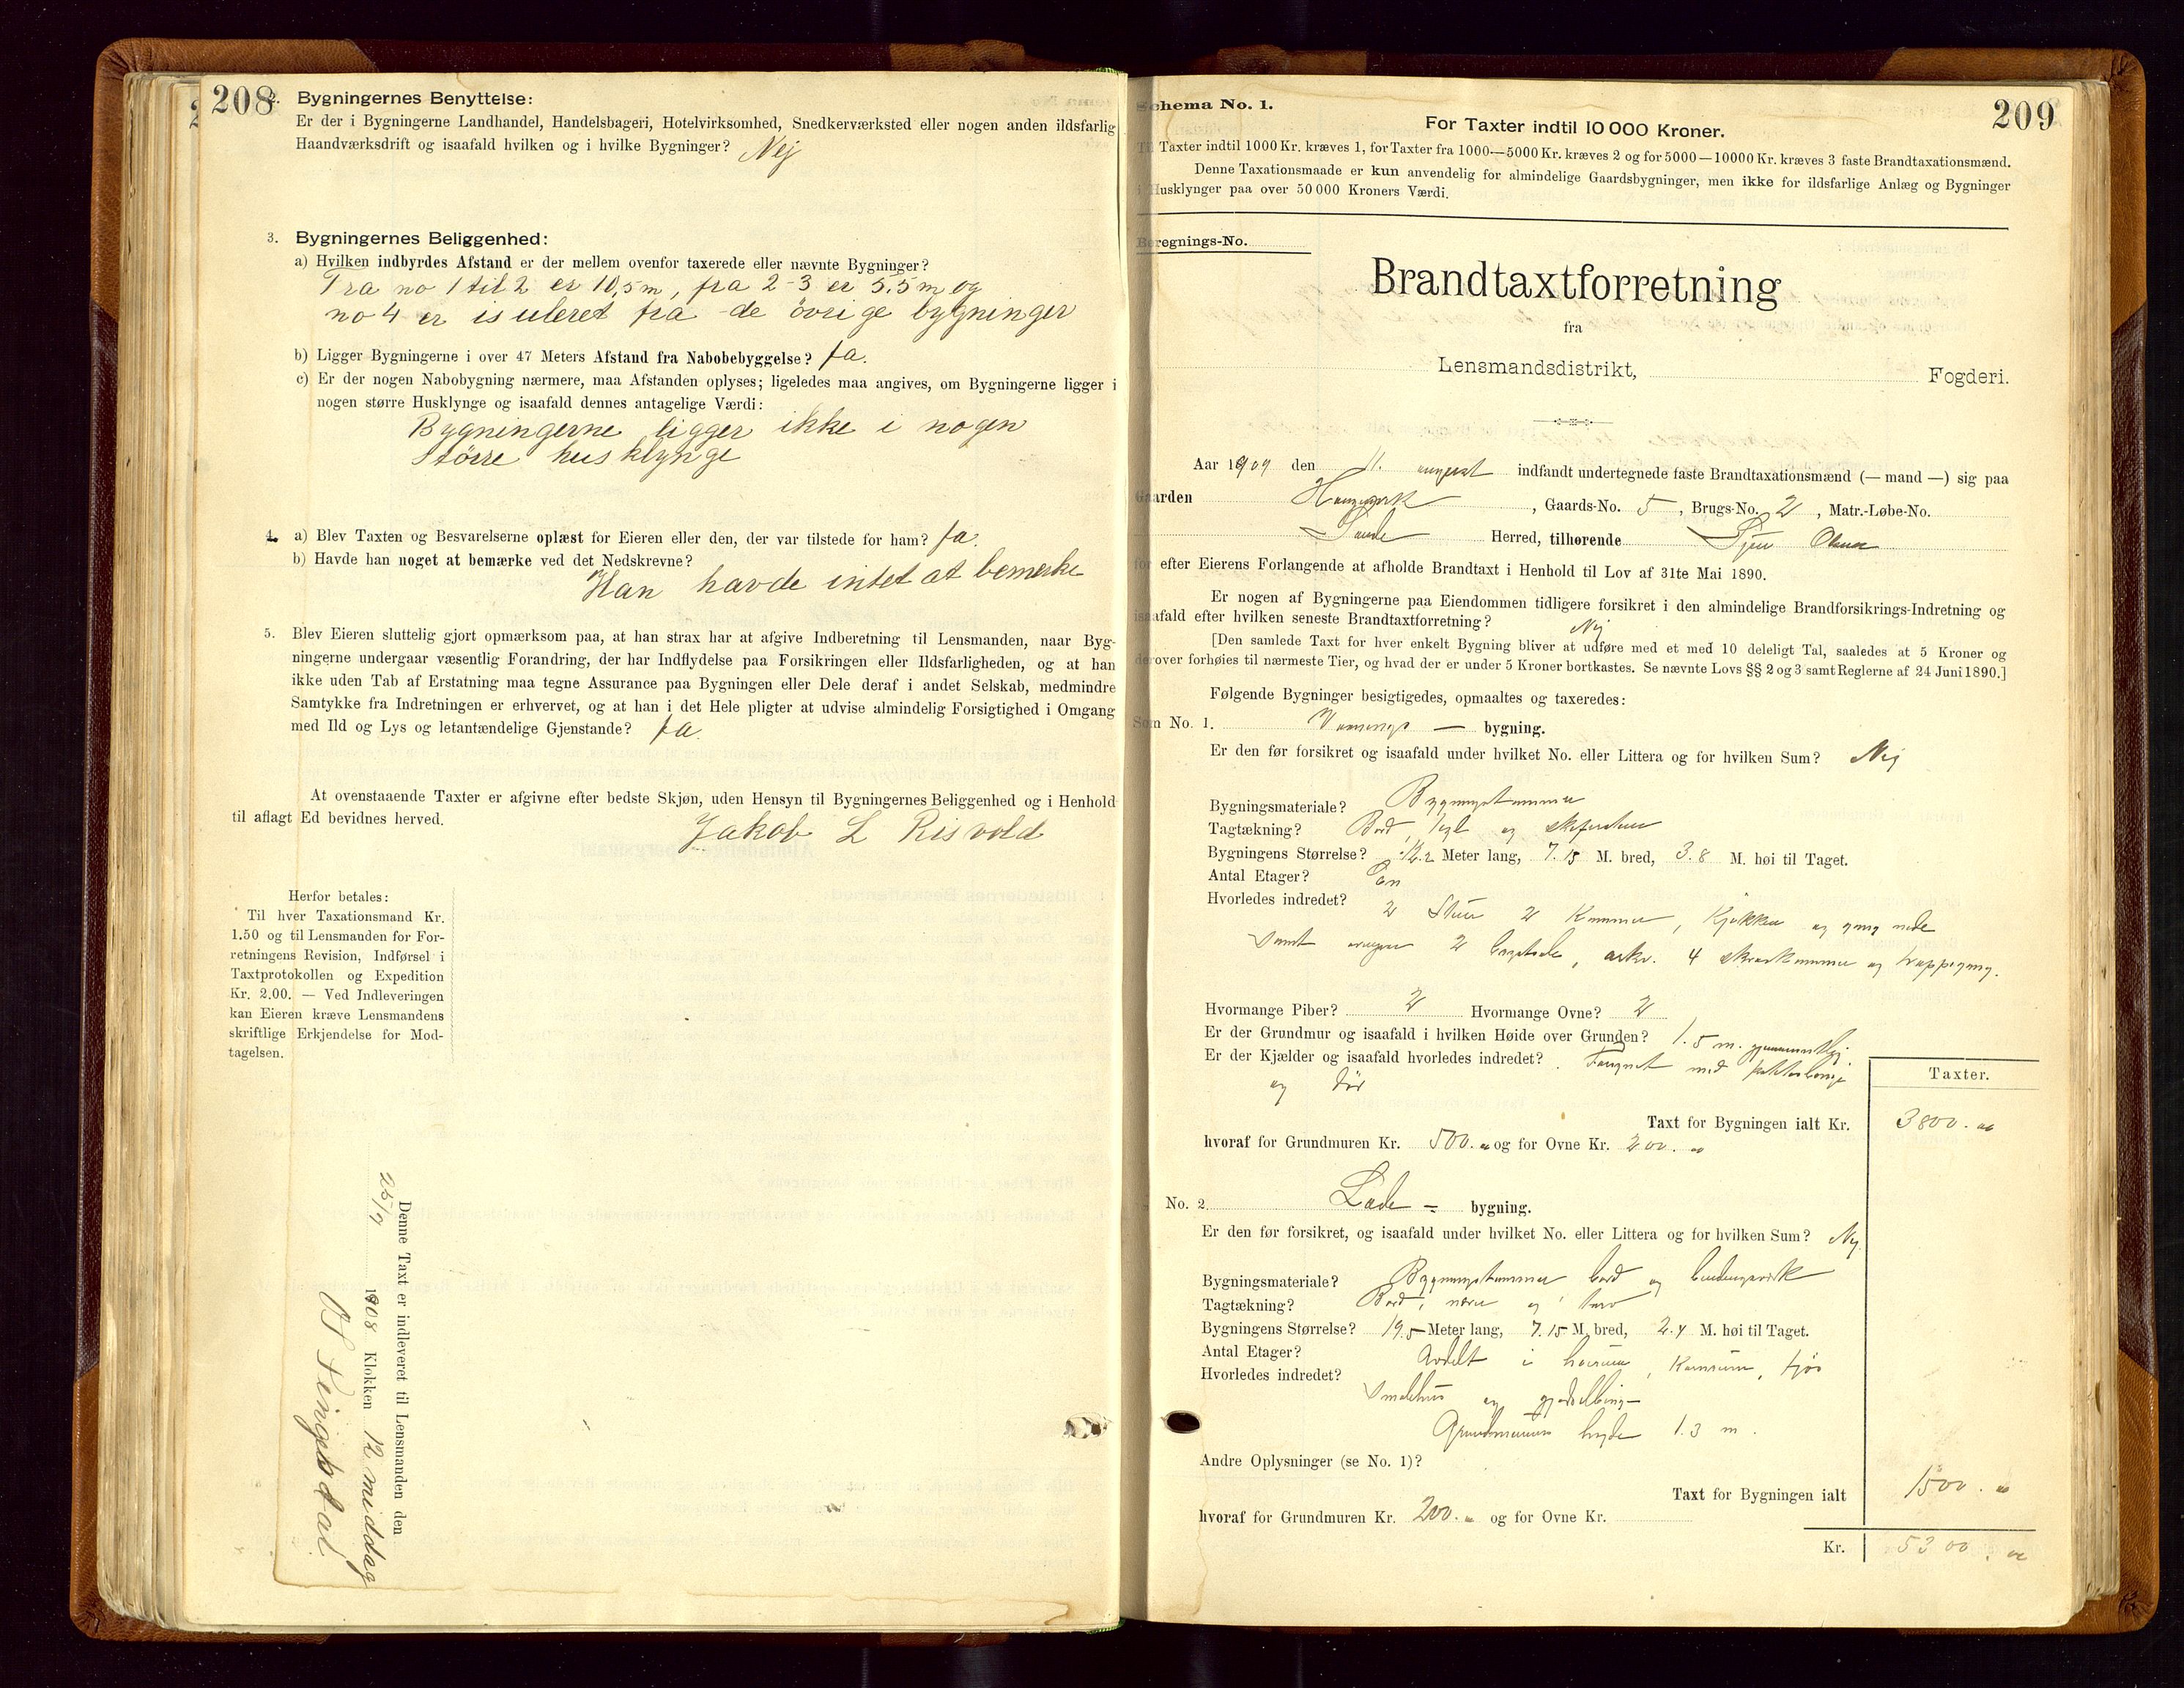 208
2. Bygningernes Benyttelse:
Er der i Bygningerne Landhandel, Handelsbageri, Hotelvirksomhed, Snedkerværksted eller nogen anden ildsfarlig
Haandværksdrift og isaafald hvilken og i hvilke Bygninger? Nej
3. Bygningernes Beliggenhed:
a) Hvilken indbyrdes Afstand er der mellem ovenfor taxerede eller nævnte Bygninger?
Fra no 1 til 2 er 10,5 m, fra 2-3 er 5,5 m og
no 4 er isuleret fra de övrige bygninger
b) Ligger Bygningerne i over 47 Meters Afstand fra Nabobebyggelse? Ja.
c) Er der nogen Nabobygning nærmere, maa Afstanden oplyses; ligeledes maa angives, om Bygningerne ligger i
nogen større Husklynge og isaafald dennes antagelige Værdi:
Bygningerne ligger ikke i nogen
Större husklynge
4. a) Blev Taxten og Besvarelserne oplæst for Eieren eller den, der var tilstede for ham? Ja.
b) Havde han noget at bemærke ved det Nedskrevne?
Han havde intet at bemerke
5. Blev Eieren sluttelig gjort opmærksom paa, at han strax har at afgive Indberetning til Lensmanden, naar Byg-
ningerne undergaar væsentlig Forandring, der har Indflydelse paa Forsikringen eller Ildsfarligheden, og at han
ikke uden Tab af Erstatning maa tegne Assurance paa Bygningen eller Dele deraf i andet Selskab, medmindre
Samtykke fra Indretningen er erhvervet, og at han i det Hele pligter at udvise almindelig Forsigtighed i Omgang
med Ild og Lys og letantændelige Gjenstande? Ja.
At ovenstaaende Taxter er afgivne efter bedste Skjøn, uden Hensyn til Bygningernes Beliggenhed og i Henhold
til aflagt Ed bevidnes herved.
Jakob L Risvold
Herfor betales:
Til hver Taxationsmand Kr.
1.50 og til Lensmanden for For-
retningens Revision, Indførsel i
Taxtprotokollen og Expedition
Kr. 2.00. — Ved Indleveringen
kan Eieren kræve Lensmandens
skriftlige Erkjendelse for Mod-
tagelsen.
Denne Taxt er indleveret til Lensmanden den
25/9 1908 Klokken 12 middag
209
Schema No. 1.
For Taxter indtil 10 000 Kroner.
Til Taxter indtil 1000 Kr. kræves 1, for Taxter fra 1000—5000 Kr. kræves 2 og for 5000—10000 Kr. kræves 3 faste Brandtaxationsmænd.
Denne Taxationsmaade er kun anvendelig for almindelige Gaardsbygninger, men ikke for ildsfarlige Anlæg og Bygninger
i Husklynger paa over 50 000 Kroners Værdi.
Beregnings-No.
Brandtaxtforretning
fra
Lensmandsdistrikt, Fogderi.
Aar 1909 den 11. august indfandt undertegnede faste Brandtaxationsmænd (— mand —) sig paa
Gaarden , Gaards-No. 5, Brugs-No. 2, Matr.-Løbe-No.
Sande Herred, tilhørende
for efter Eierens Forlangende at afholde Brandtaxt i Henhold til Lov af 31te Mai 1890.
Er nogen af Bygningerne paa Eiendommen tidligere forsikret i den almindelige Brandforsikrings-Indretning og
isaafald efter hvilken seneste Brandtaxtforretning? Nej
[Den samlede Taxt for hver enkelt Bygning bliver at udføre med et med 10 deleligt Tal, saaledes at 5 Kroner og
derover forhøies til nærmeste Tier, og hvad der er under 5 Kroner bortkastes. Se nævnte Lovs §§ 2 og 3 samt Reglerne af 24 Juni 1890.]
Følgende Bygninger besigtigedes, opmaaltes og taxeredes:
Som No. 1. Vaanings — bygning.
Er den før forsikret og isaafald under hvilket No. eller Littera og for hvilken Sum? Nej
Bygningsmateriale? Bygningstømmer
Tagtækning? Bord, og
Bygningens Størrelse? 12.2 Meter lang, 7.15 M. bred, 3.8 M. høi til Taget.
Antal Etager? En
Hvorledes indredet? 2 Stuer 2 Kammer, Kjøkken og gang nede
samt 2 , 4 skraakammer og trappegang.
Hvormange Piber? 2 Hvormange Ovne? 2
Er der Grundmur og isaafald i hvilken Høide over Grunden? 1.5 m.
Er der Kjælder og isaafald hvorledes indredet? Forsynet med
og dør
Taxter.
Taxt for Bygningen ialt Kr. 3800.
hvoraf for Grundmuren Kr. 500. og for Ovne Kr. 200.
No. 2. Lade - bygning.
Er den før forsikret, og isaafald under hvilket No. eller Littera og for hvilken Sum? Nej
Bygningsmateriale? Bygningstømmer bord og bindingsverk
Tagtækning? Bord, næver og torv
Bygningens Størrelse? 19.5 Meter lang, 7.15 M. bred, 2.4 M. høi til Taget.
Antal Etager?
Hvorledes indredet? Avdelt i , Kornrum, fjøs
Smalehus og
Grundmurens høyde 1.3 m.
Andre Oplysninger (se No. 1)?
Taxt for Bygningen ialt 1500.
hvoraf for Grundmuren Kr. 200. og for Ovne Kr.
Kr. 5300.